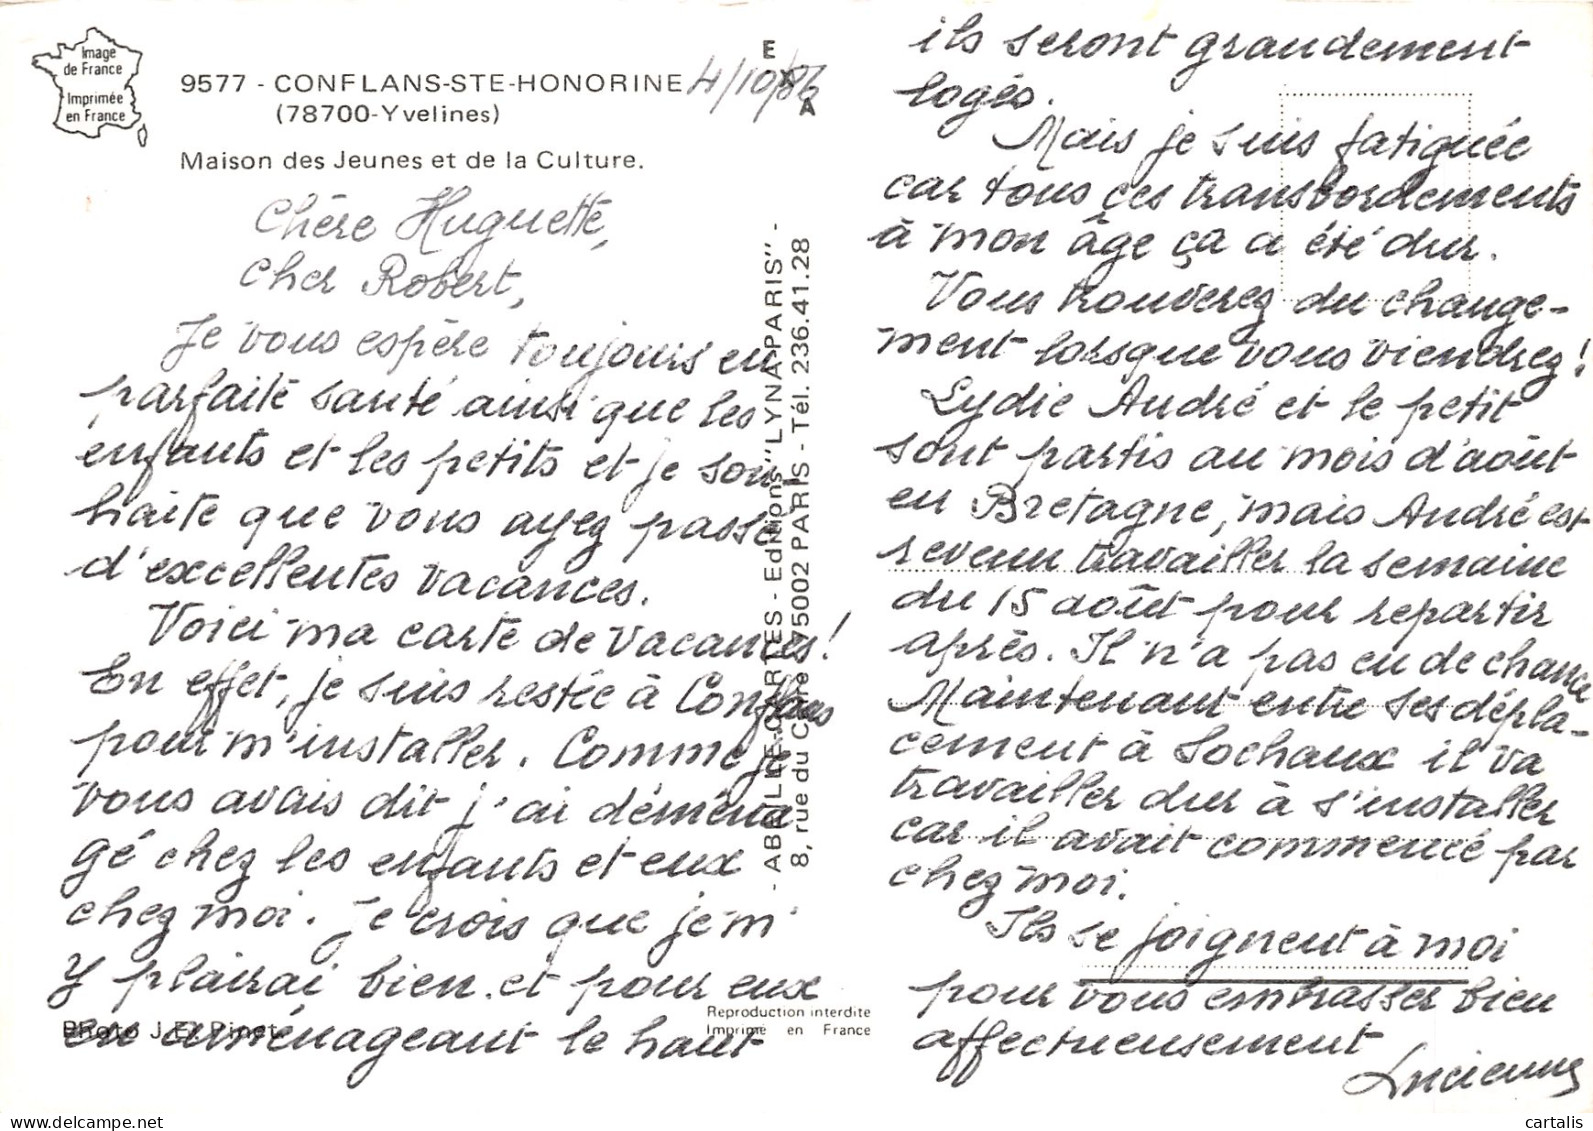 Image
de France
Imprimée
en France
9577 - CONFLANS-STE-HONORINE
(78700-Yvelines)
Maison des Jeunes et de la Culture.
4/10/86
E
A
Chère Huguette,
Cher Robert,
Je vous espère toujours en
parfaite santé ainsi que les
enfants et les petits et je sou
haite que vous ayez passé
d'excellentes vacances.
Voici ma carte de vacances!
En effet, je suis restée à Conflans
pour m'installer. Comme je
vous avais dit j'ai déména
gé chez les enfants et eux
chez moi. Je crois que je m'
y plairai bien et pour eux
en aménageant le haut
Photo J.E. Pinet
- ABEILLE-CARTES - Editions "LYNA-PARIS" -
8, rue du Caire 75002 PARIS - Tél. 236.41.28
Reproduction interdite
Imprimé en France
ils seront grandement
logés.
Mais je suis fatiguée
car tous ces transbordements
à mon âge ça a été dur.
Vous trouverez du change-
ment lorsque vous viendrez!
Lydie André et le petit
sont partis au mois d'août
en Bretagne, mais André est
revenu travailler la semaine
du 15 août pour repartir
après. Il n'a pas eu de chance
Maintenant entre ses dépla-
cement à Sochaux il va
travailler dur à s'installer
car il avait commencé par
chez moi.
Ils se joignent à moi
pour vous embrasser bien
affectueusement
Lucienne